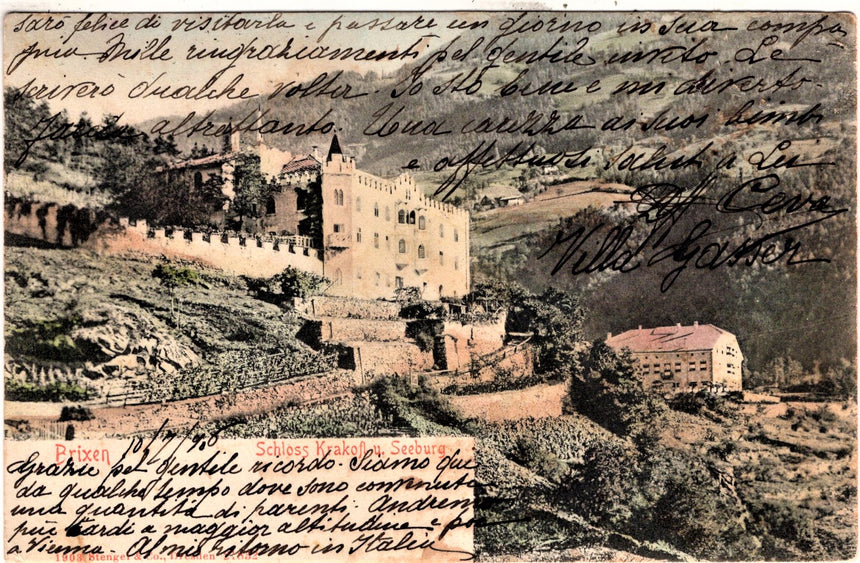 sarò felice di visitarla e passare un giorno in sua compa-
gnia. Mille ringraziamenti pel gentile invito. Le
scriverò qualche volta. Io sto bene e mi diverto.
altrettanto. Una carezza ai suoi bimbi
e affettuosi saluti a Lei
Ceva
Villa Gasser
Brixen
Schloss Krakofl u. Seeburg
Grazie pel gentile ricordo. Siamo qui
da qualche tempo dove sono conosciuta
una quantità di parenti. Andremo
più tardi a maggior altitudine e poi
a Vienna. Al mio ritorno in Italia
1903 Stengel & Co., Dresden